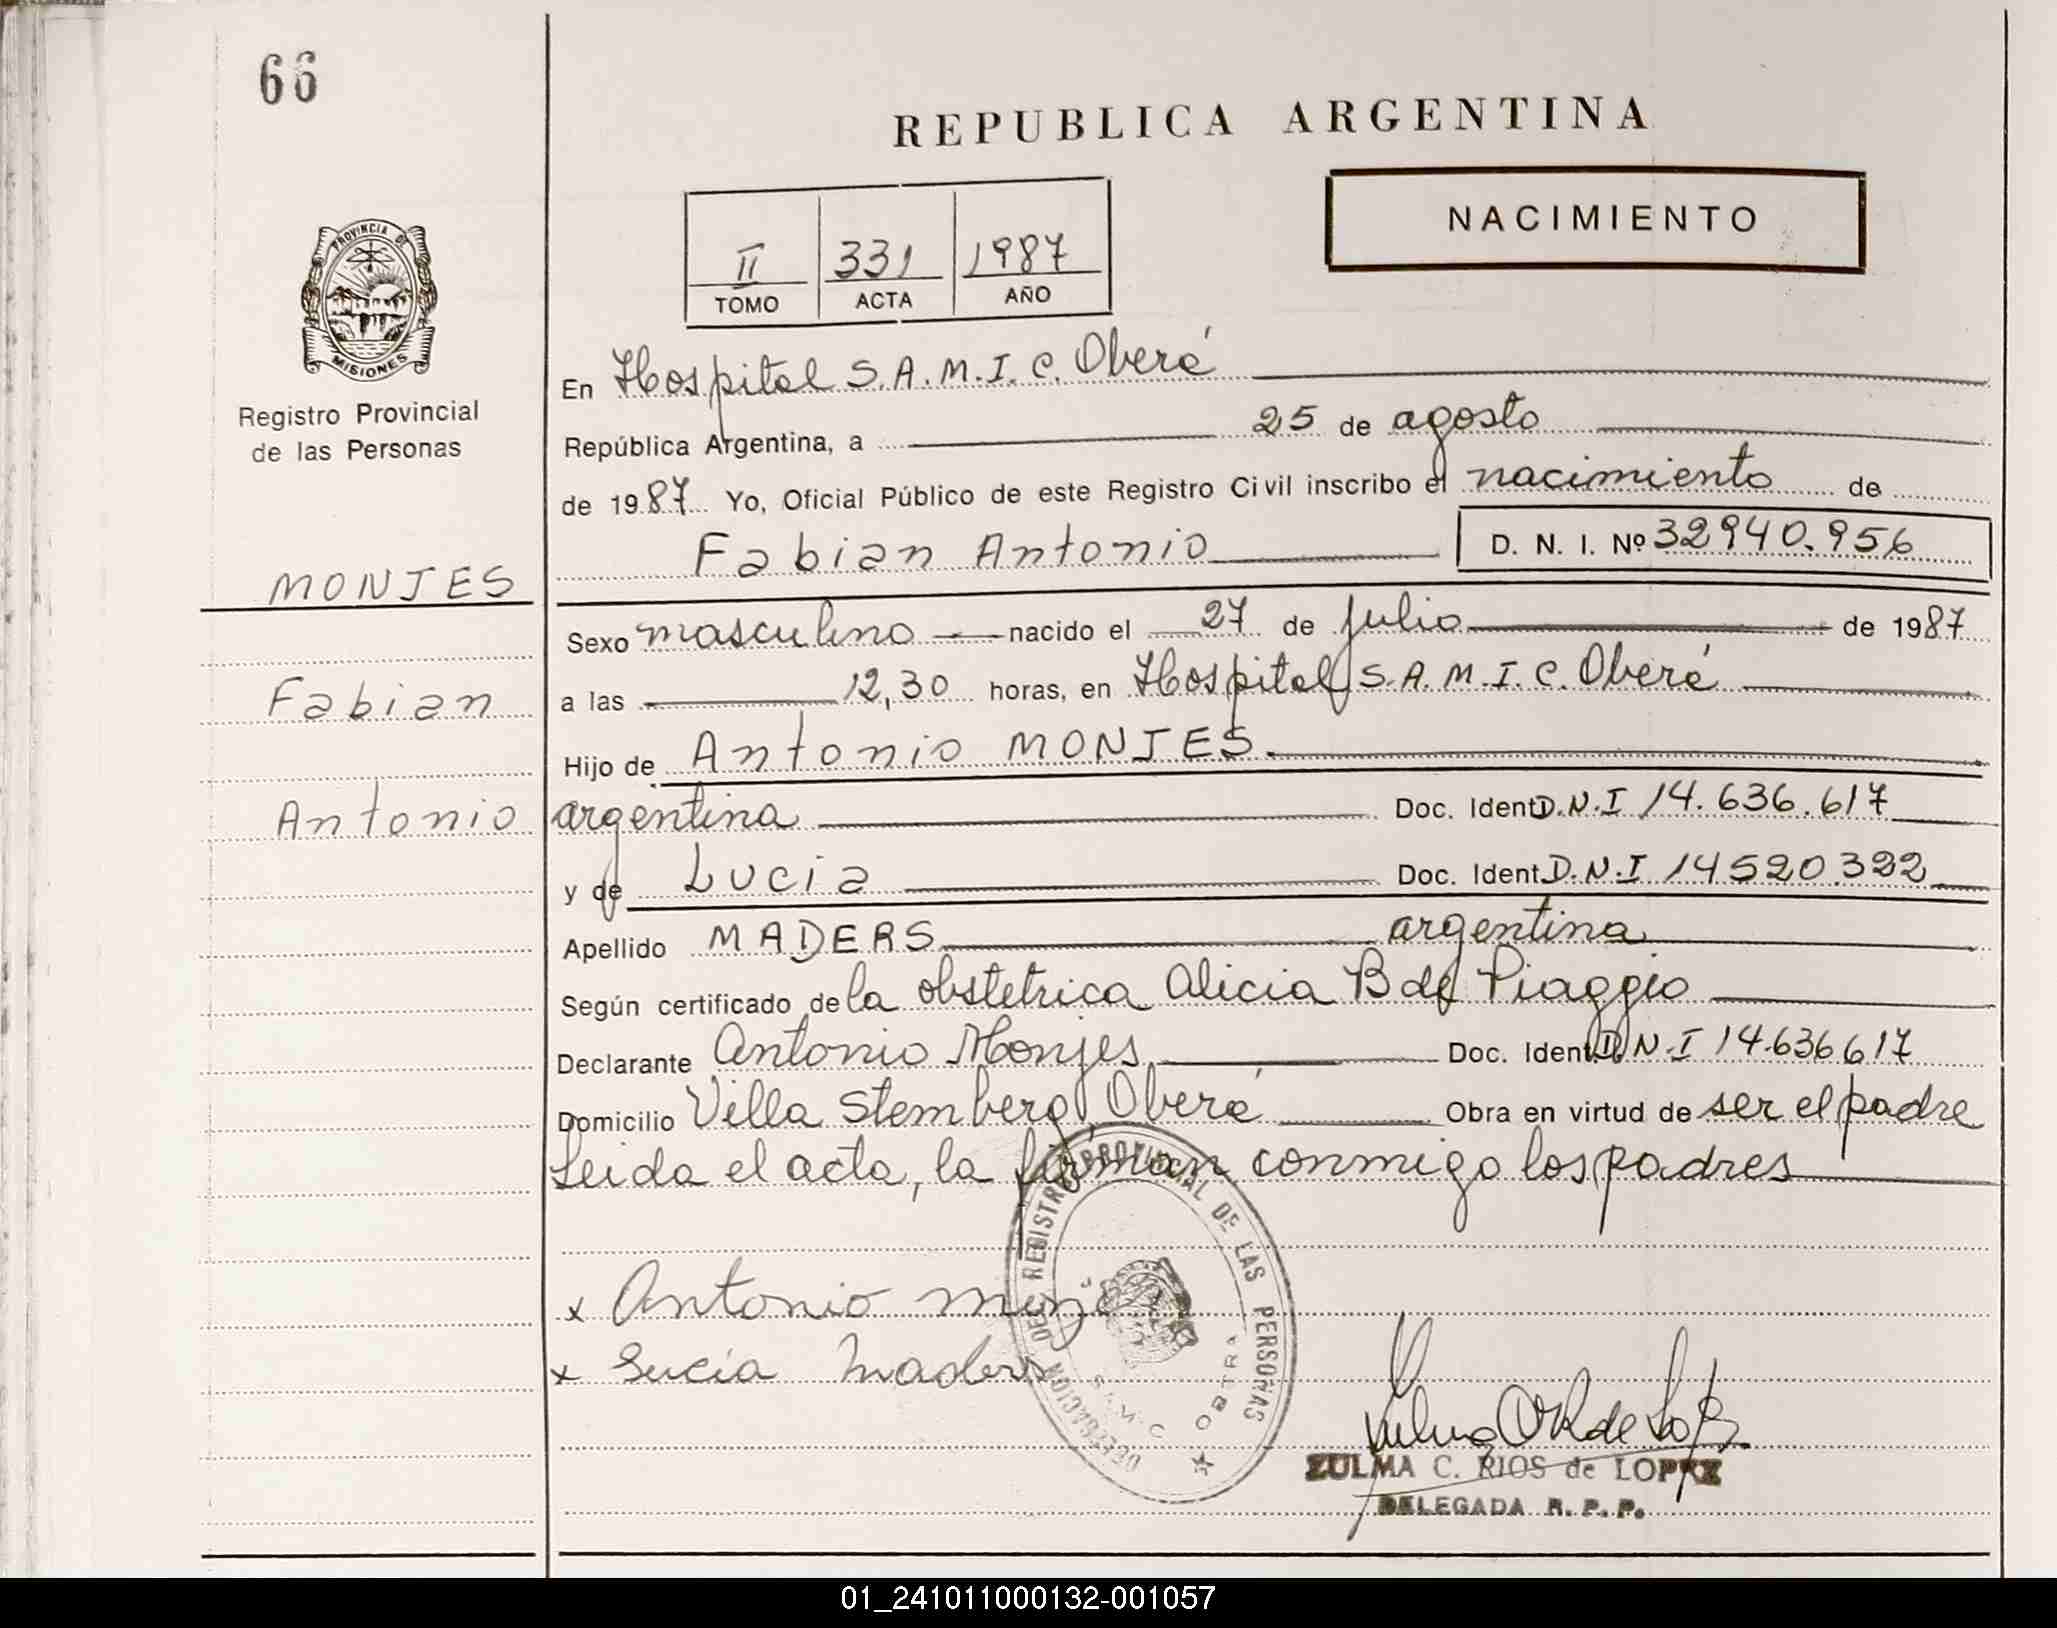 66
REPUBLICA ARGENTINA
NACIMIENTO
II 331 1987
TOMO ACTA AÑO
PROVINCIA DE
MISIONES
Registro Provincial
de las Personas
En Hospital S.A.M.I.C. Oberá
República Argentina, a 25 de agosto
de 1987 Yo, Oficial Público de este Registro Civil inscribo el nacimiento de
Fabian Antonio D. N. I. Nº 32940.956
MONJES
Sexo masculino nacido el 27 de julio de 1987
Fabian
a las 12,30 horas, en Hospital S.A.M.I.C. Oberá
Hijo de Antonio MONJES
Antonio
argentina Doc. Ident D.N.I 14.636.617
y de Lucia Doc. Ident. D.N.I 14520.322
Apellido MADERS argentina
Según certificado de la obstetrica Alicia B de Piaggio
Declarante Antonio Monjes Doc. Ident. D.N.I 14.636617
Domicilio Villa Stemberg Oberá Obra en virtud de ser el padre
Leida el acta, la firman conmigo los padres
DELEGACION DEL REGISTRO PROVINCIAL DE LAS PERSONAS
x Antonio
x Lucia Maders
S.A.M.I.C
ZULMA C. RIOS de LOPEZ
DELEGADA R. P. P.
01_241011000132-001057